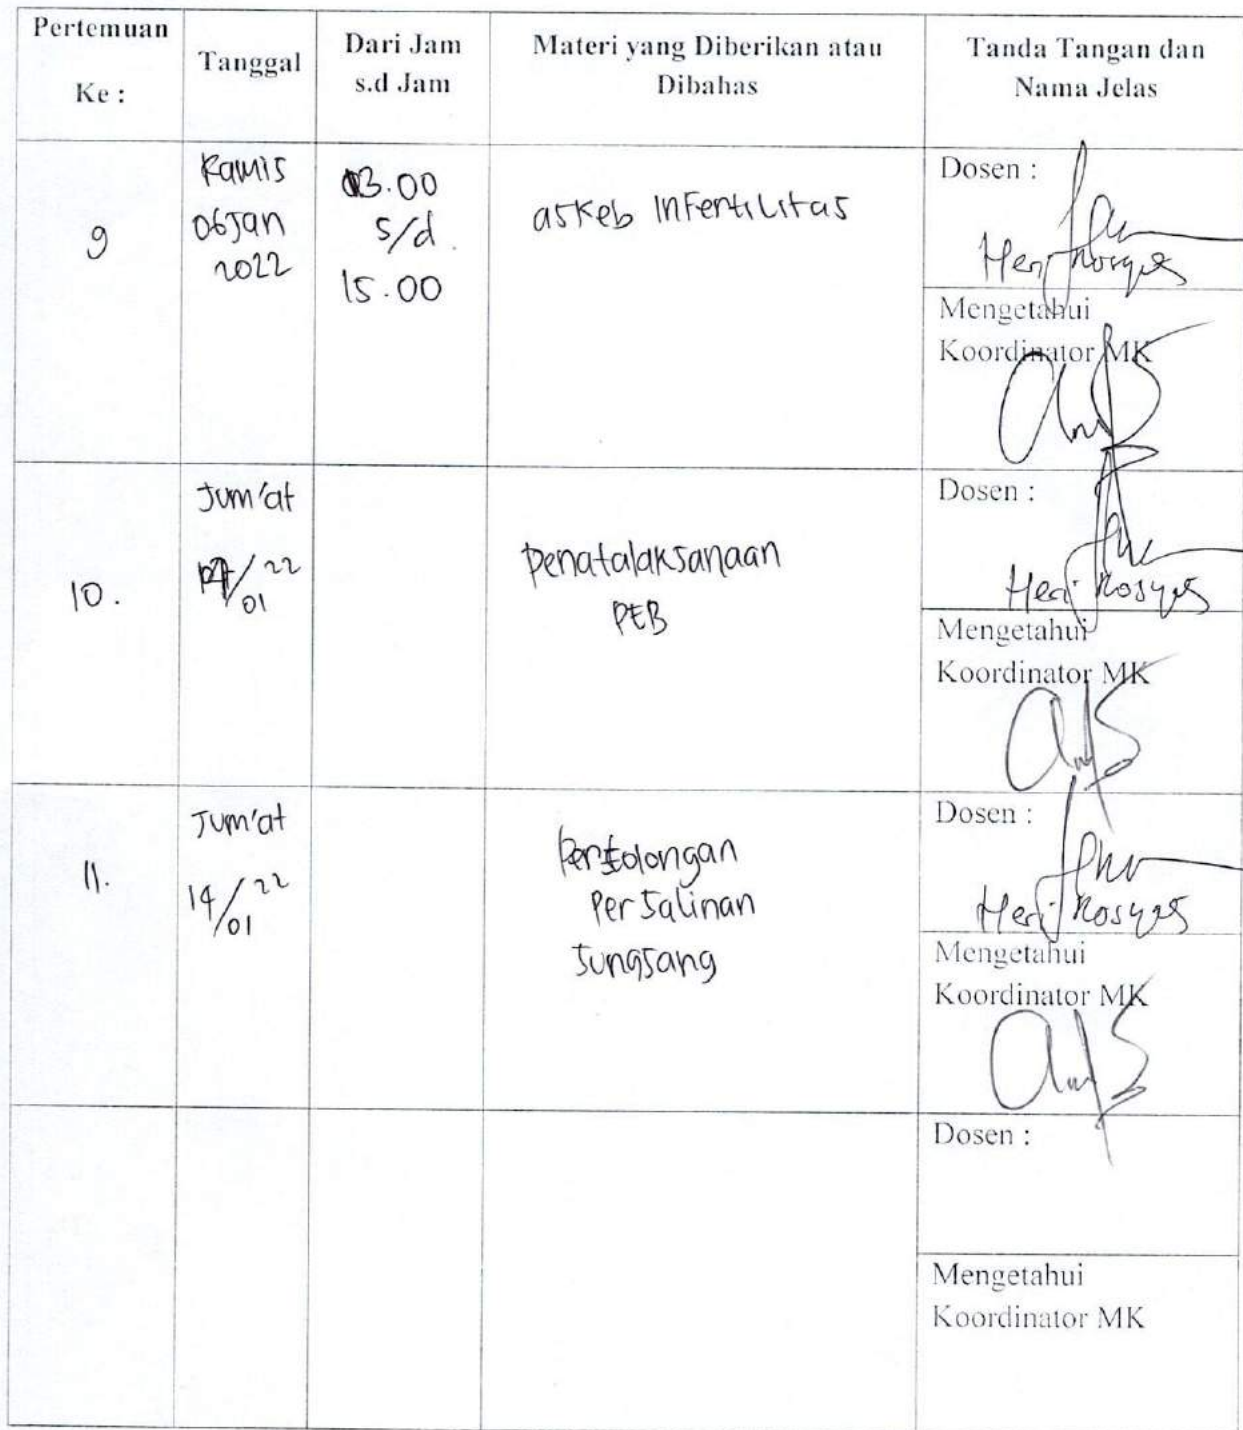 Pertemuan
Ke :
Tanggal
Dari Jam
s.d Jam
Materi yang Diberikan atau
Dibahas
Tanda Tangan dan
Nama Jelas
9
Kamis
06 Jan
2022
13.00
s/d
15.00
askeb Infertilitas
Dosen :
Heri Rosyas
Mengetahui
Koordinator MK
10.
Jum'at
/ 22
01
Penatalaksanaan
PEB
Dosen :
Heri Rosyas
Mengetahui
Koordinator MK
11.
Jum'at
14/ 22
01
Pertolongan
Persalinan
Sungsang
Dosen :
Heri Rosyas
Mengetahui
Koordinator MK
Dosen :
Mengetahui
Koordinator MK